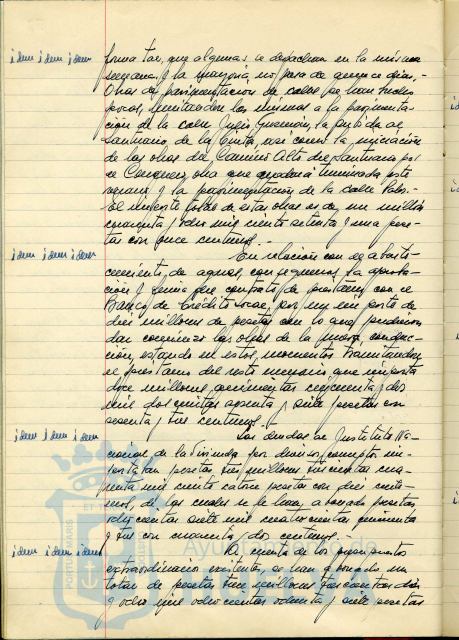 idem idem idem
formatar, que algunas se despachan en la misma
semana y la mayoría, no pasa de quince días.-
Obras de pavimentación de calles se han hecho
pocas, limitandose las mismas a la pavimenta-
ción de la calle Julio Guzmán, la subida al
santuario de la Cinta, así como la iniciación
de las obras del Camino Alto del Santuario por
el Conquero, obra que quedará terminada este
verano y la pavimentación de la calle
El importe total de estas obras es de un millón
cincuenta y ocho mil ciento setenta y una pese-
tas con once centimos.-
idem idem idem
En relación con el abaste-
cimiento de aguas, conseguimos la aproba-
ción y firma del contrato de prestamo con el
Banco de Crédito Local, por un importe de
diez millones de pesetas con lo que pudieron
dar comienzo las obras de la nueva conduc-
ción, estando en estos momentos tramitandose
el prestamo del resto necesario que importa
doce millones, quinientas cincuenta y dos
mil doscientas ochenta y siete pesetas con
sesenta y tres centimos.-
idem idem idem
Las deudas al Instituto Na-
cional de la Vivienda por diversos conceptos im-
portaban pesetas tres millones trescientas cua-
renta mil ciento catorce pesetas con diez centi-
mos, de las cuales se le han abonado pesetas
ochocientas siete mil cuatrocientas cincuenta
y tres con cincuenta y dos centimos.-
idem idem idem
A cuenta de los presupuestos
extraordinarios existentes, se han abonado un
total de pesetas trece millones trescientas diez
y ocho mil ochocientas ochenta y siete pesetas
Ayuntamiento de
HUELVA
PORTUS MARIS
ET TERRAE